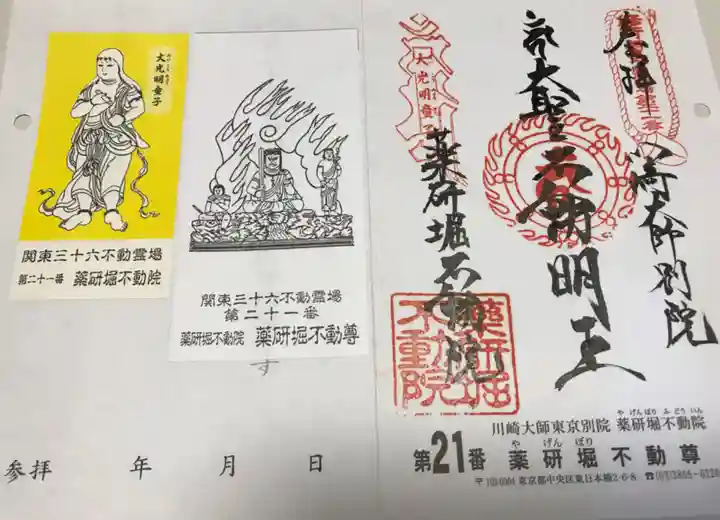 大光明童子
関東三十六不動霊場
第二十一番 薬研堀不動院
関東三十六不動霊場
第二十一番
薬研堀不動院 薬研堀不動尊
す
参拝 年 月 日
奉拝
川崎大師別院
大聖不動明王
大光明童子
薬研堀不動院
薬研堀不動院
川崎大師東京別院 薬研堀不動院
やげんぼり ふどういん
第21番 薬研堀不動尊
や げん ぼり
東京都中央区東日本橋2-6-8